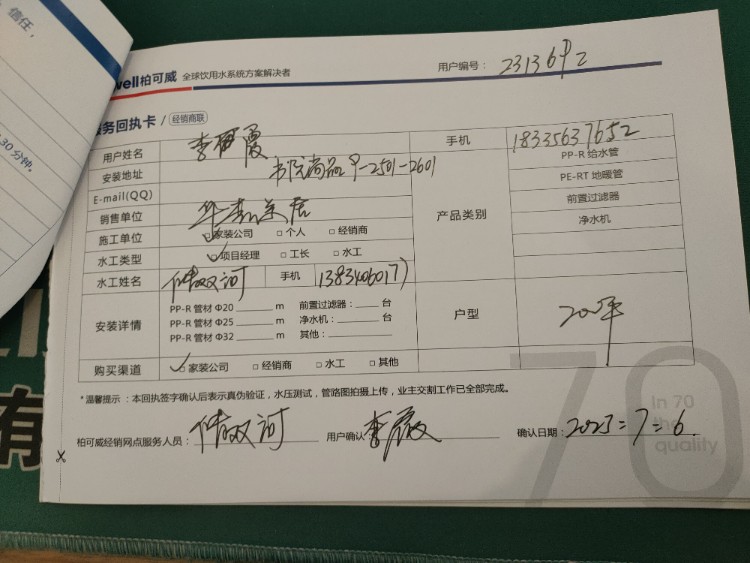 信任，
30分钟。
有
well柏可威 全球饮用水系统方案解决者
用户编号：
服务回执卡 / 经销商联
用户姓名 李 霞 手机 18335637652
安装地址 书院尚品 9-2501-2601 PP-R 给水管
E-mail(QQ) PE-RT 地暖管
销售单位 华 居 产品类别 前置过滤器
施工单位 ☑家装公司 □个人 □经销商 净水机
水工类型 ☑项目经理 □工长 □水工
水工姓名 双河 手机
安装详情 PP-R 管材 Φ20 ______ m 前置过滤器：____ 台 户型 200平
PP-R 管材 Φ25 ______ m 净水机：____ 台
PP-R 管材 Φ32 ______ m 其他：____
购买渠道 ☑家装公司 □经销商 □水工 □其他
*温馨提示：本回执签字确认后表示真伪验证，水压测试，管路图拍摄上传，业主交割工作已全部完成。
柏可威经销网点服务人员： 双河 用户确认 李 确认日期：2023=7=6.
70
In 70
the
quality